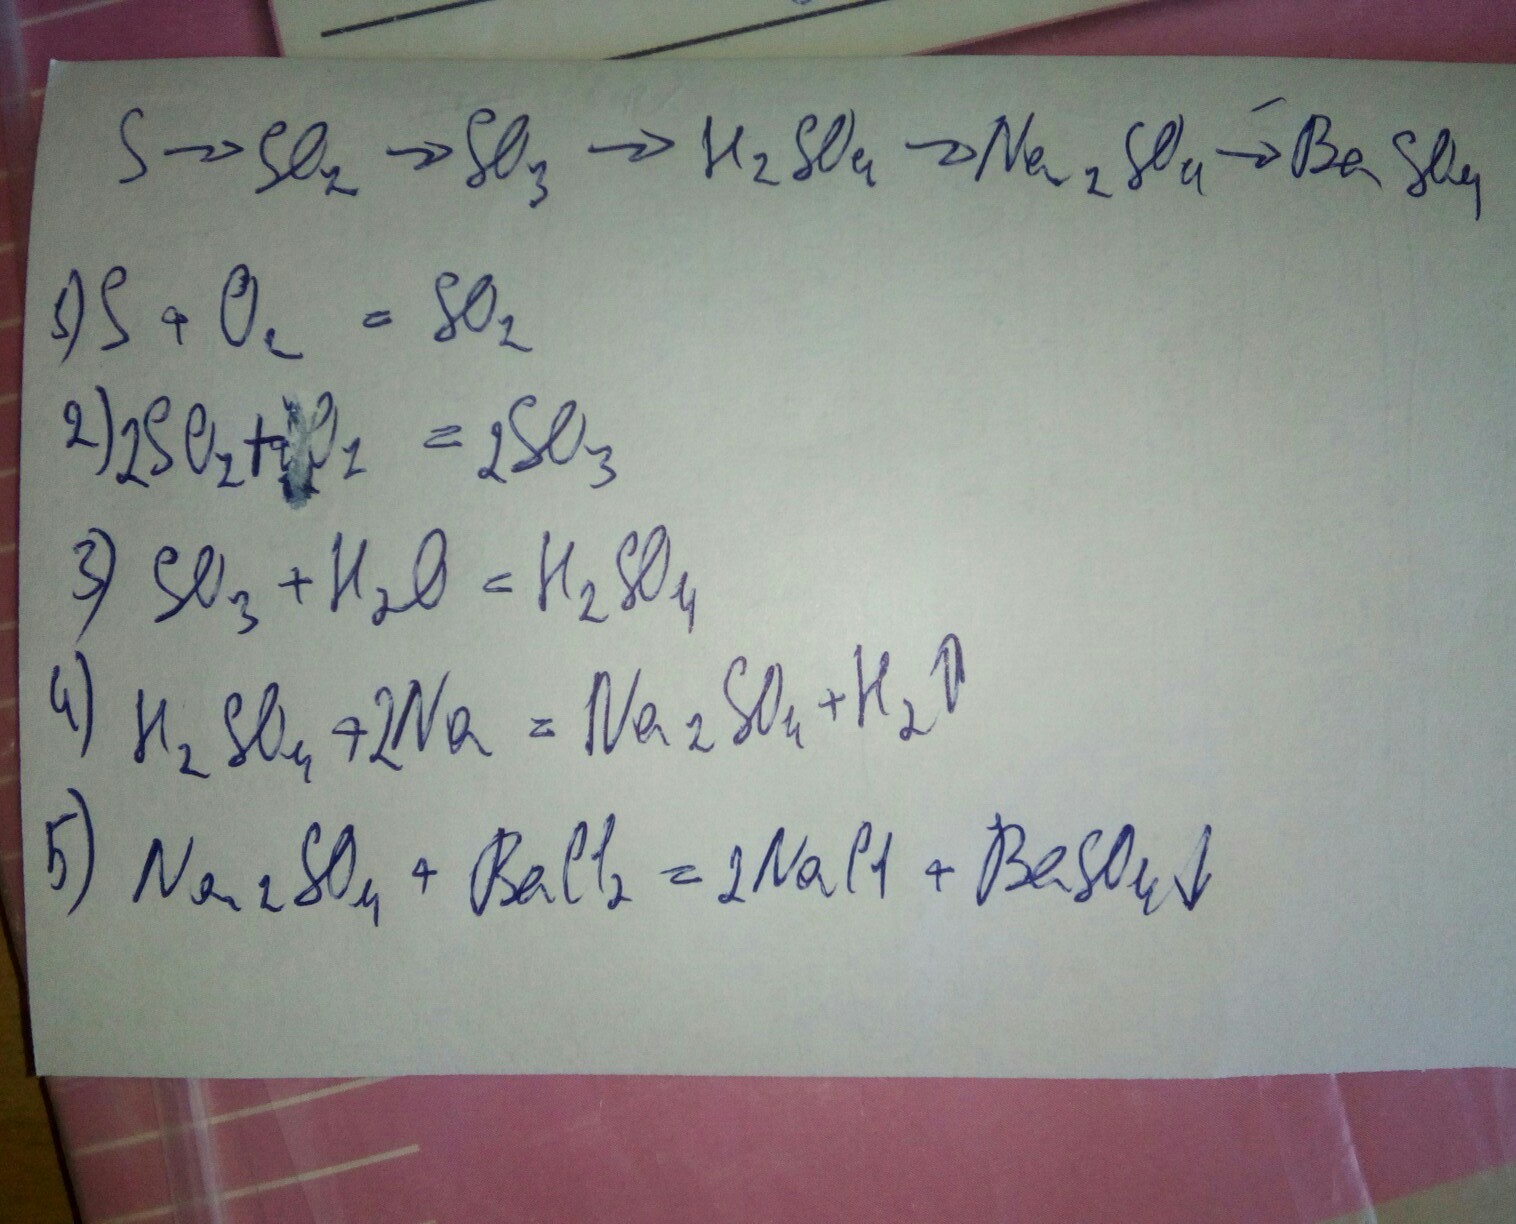 S → SO₂ → SO₃ → H₂SO₄ → Na₂SO₄ → BaSO₄
1) S + O₂ = SO₂
2) 2SO₂ + O₂ = 2SO₃
3) SO₃ + H₂O = H₂SO₄
4) H₂SO₄ + 2Na = Na₂SO₄ + H₂↑
5) Na₂SO₄ + BaCl₂ = 2NaCl + BaSO₄↓